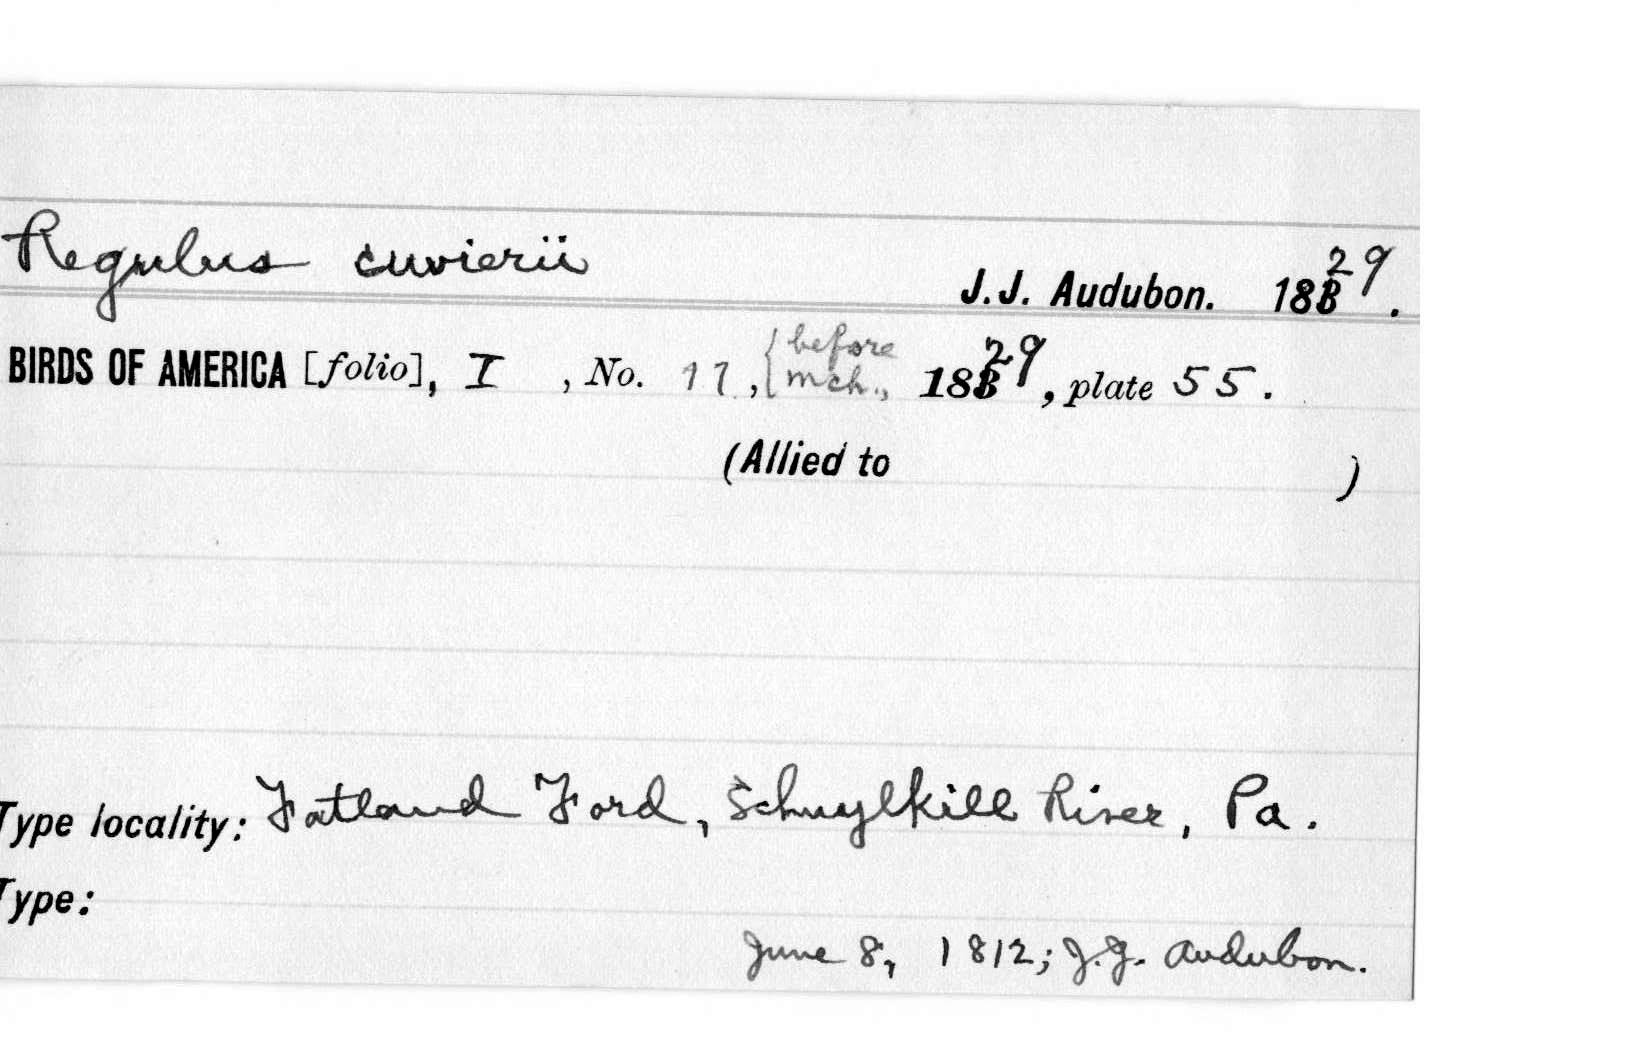 Regulus cuvierii
J.J. Audubon. 1829.
BIRDS OF AMERICA [folio], I , No. 11, {before mch., 1829, plate 55.
(Allied to )
Type locality: Fatland Ford, Schuylkill River, Pa.
Type:
June 8, 1812; J.J. Audubon.